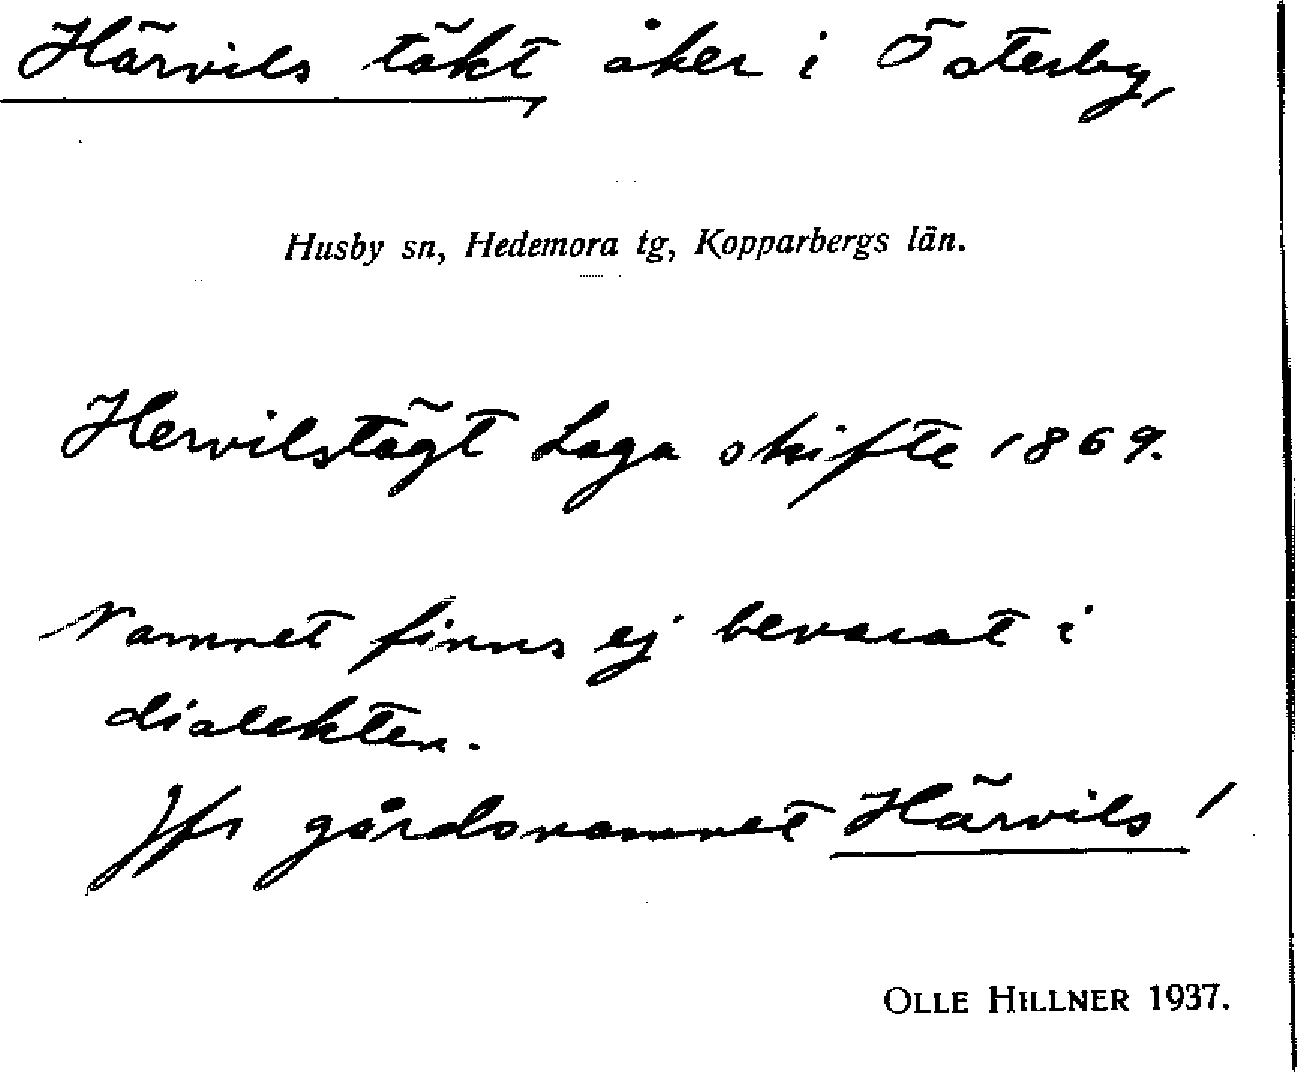 Härvils täkt, åker i Österby,
Husby sn, Hedemora tg, Kopparbergs län.
Hervilstägt Laga skifte 1869.
Namnet finns ej bevarat i
dialekten.
Jfr gårdsnamnet Härvils!
OLLE HILLNER 1937.